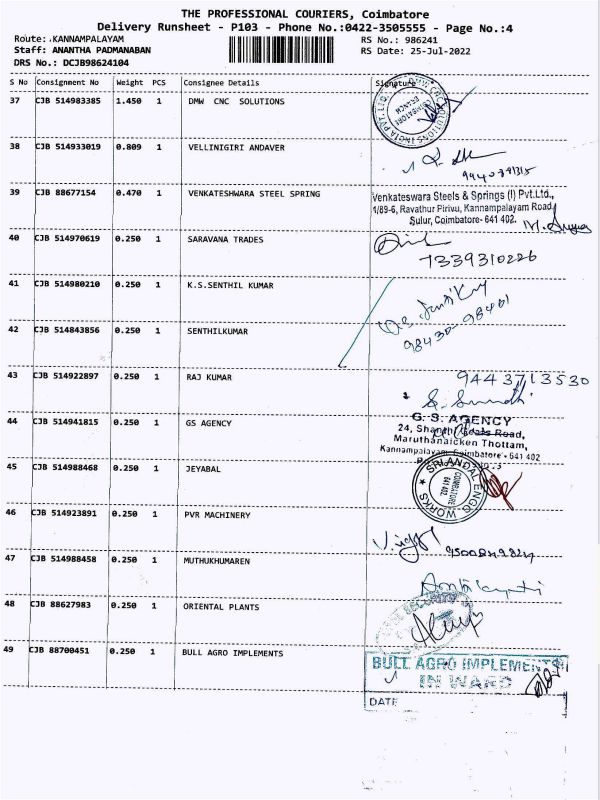 THE PROFESSIONAL COURIERS, Coimbatore
Delivery Runsheet - P103 - Phone No.:0422-3505555 - Page No.:4
Route: KANNAMPALAYAM RS No.: 986241
Staff: ANANTHA PADMANABAN RS Date: 25-Jul-2022
DRS No.: DCJB98624104
S No Consignment No Weight PCS Consignee Details Signature
37 CJB 514983385 1.450 1 DMW CNC SOLUTIONS
CNC SOLUTIONS INDIA PVT. LTD.
COIMBATORE
BRANCH
38 CJB 514933019 0.809 1 VELLINIGIRI ANDAVER
39 CJB 88677154 0.470 1 VENKATESHWARA STEEL SPRING
Venkateswara Steels & Springs (I) Pvt.Ltd.,
1/89-6, Ravathur Pirivu, Kannampalayam Road,
Sulur, Coimbatore- 641 402.
40 CJB 514970619 0.250 1 SARAVANA TRADES
7339310226
41 CJB 514980210 0.250 1 K.S.SENTHIL KUMAR
98430-98401
42 CJB 514843856 0.250 1 SENTHILKUMAR
43 CJB 514922897 0.250 1 RAJ KUMAR
9443713530
44 CJB 514941815 0.250 1 GS AGENCY
G. S. AGENCY
24, Road,
Maruthanaicken Thottam,
Kannampalayam, Coimbatore - 641 402
45 CJB 514988468 0.250 1 JEYABAL
SRI ANDAL ENGG. WORKS
COIMBATORE
641 402.
46 CJB 514923891 0.250 1 PVR MACHINERY
47 CJB 514988458 0.250 1 MUTHUKHUMAREN
48 CJB 88627983 0.250 1 ORIENTAL PLANTS
SECURITY
49 CJB 88700451 0.250 1 BULL AGRO IMPLEMENTS
BULL AGRO IMPLEMENTS
IN WARD
DATE